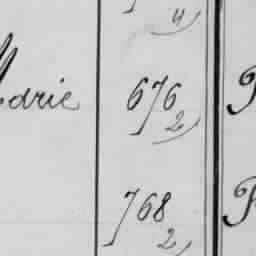 4)
Marie 676 P
2)
768 P
2)